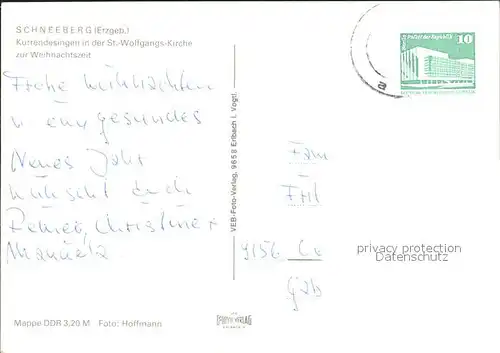 SCHNEEBERG (Erzgeb.)
Kurrendesingen in der St.-Wolfgangs-Kirche
zur Weihnachtszeit
Frohe Weihnachten
u ein gesundes
Neues Jahr
wünscht euch
Reiner, Christine +
Manuela
Mappe DDR 3,20 M Foto: Hoffmann
VEB-Foto-Verlag, 9658 Erlbach i. Vogtl.
10
Fam
9156
privacy protection
Datenschutz